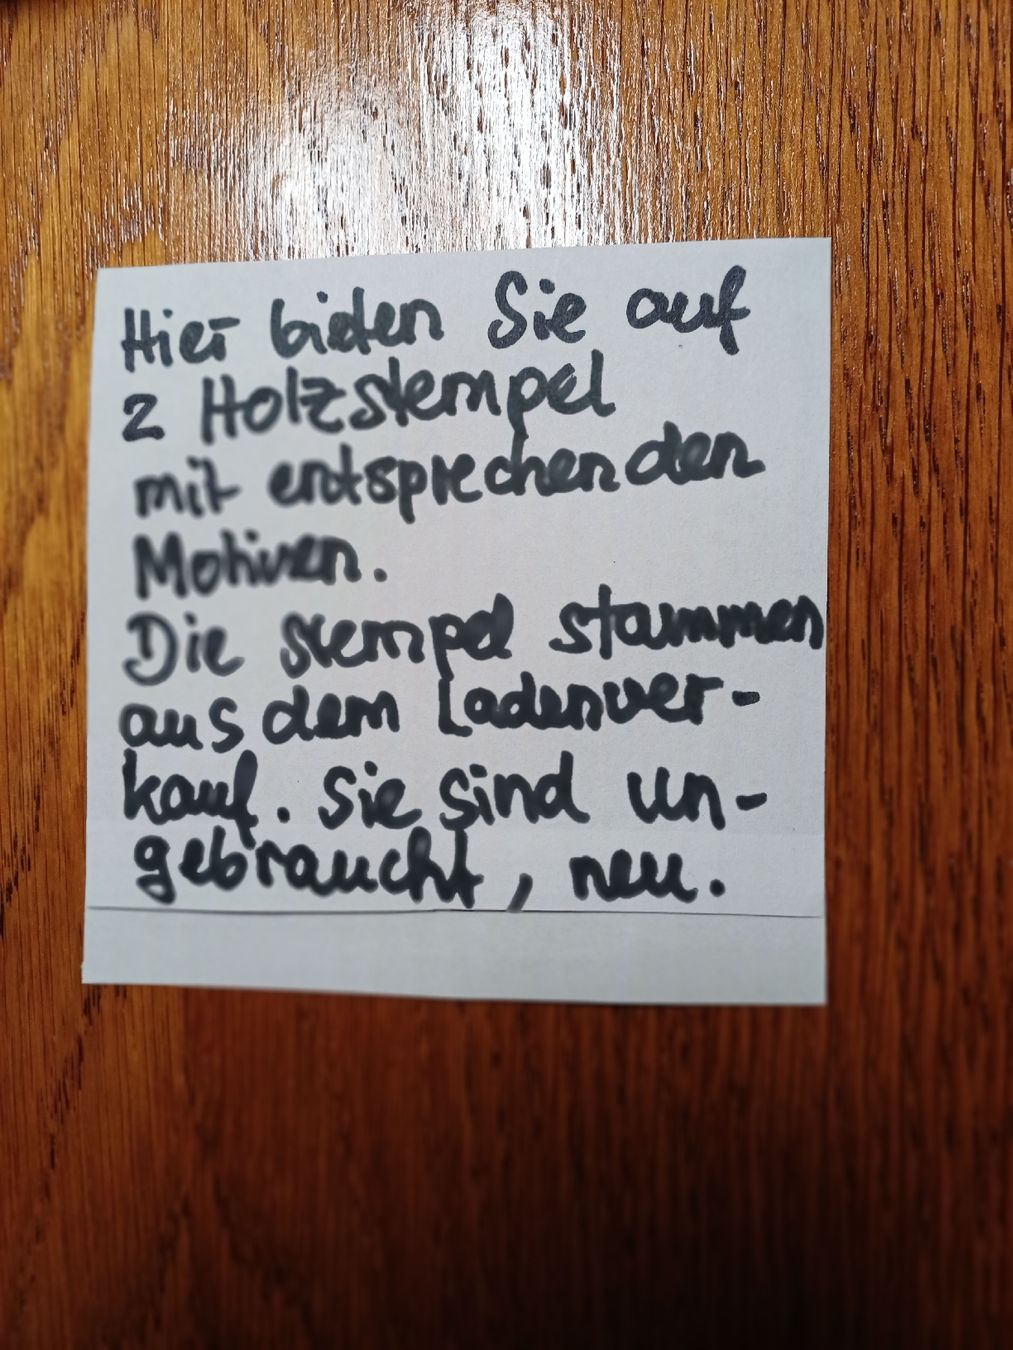 Hier bieten Sie auf
2 Holzstempel
mit entsprechenden
Motiven.
Die Stempel stammen
aus dem Ladenver-
kauf. Sie sind un-
gebraucht, neu.